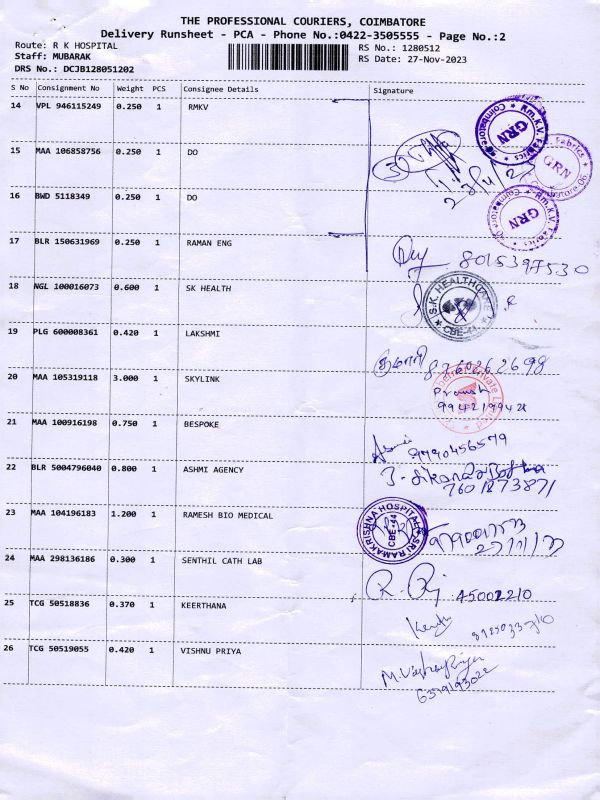 THE PROFESSIONAL COURIERS, COIMBATORE
Delivery Runsheet - PCA - Phone No.:0422-3505555 - Page No.:2
Route: R K HOSPITAL
Staff: MUBARAK
DRS No.: DCJB128051202
RS No.: 1280512
RS Date: 27-Nov-2023
S No Consignment No Weight PCS Consignee Details Signature
14 VPL 946115249 0.250 1 RMKV
15 MAA 106858756 0.250 1 DO
16 BWD 5118349 0.250 1 DO
17 BLR 150631969 0.250 1 RAMAN ENG
8015397530
18 NGL 100016073 0.600 1 SK HEALTH
19 PLG 600008361 0.420 1 LAKSHMI
குமாரி 8760262698
20 MAA 105319118 3.000 1 SKYLINK
9942199428
21 MAA 100916198 0.750 1 BESPOKE
9790456579
22 BLR 5004796040 0.800 1 ASHMI AGENCY
7601873871
23 MAA 104196183 1.200 1 RAMESH BIO MEDICAL
SRI RAMAKRISHNA HOSPITAL CBE-44
24 MAA 298136186 0.300 1 SENTHIL CATH LAB
45002210
25 TCG 50518836 0.370 1 KEERTHANA
26 TCG 50519055 0.420 1 VISHNU PRIYA
Rm.K.V. Fabrics Coimbatore GRN
Fabrics Coimbatore GRN
Rm.K.V. Fabrics GRN
S.K. HEALTHCARE CBE-44